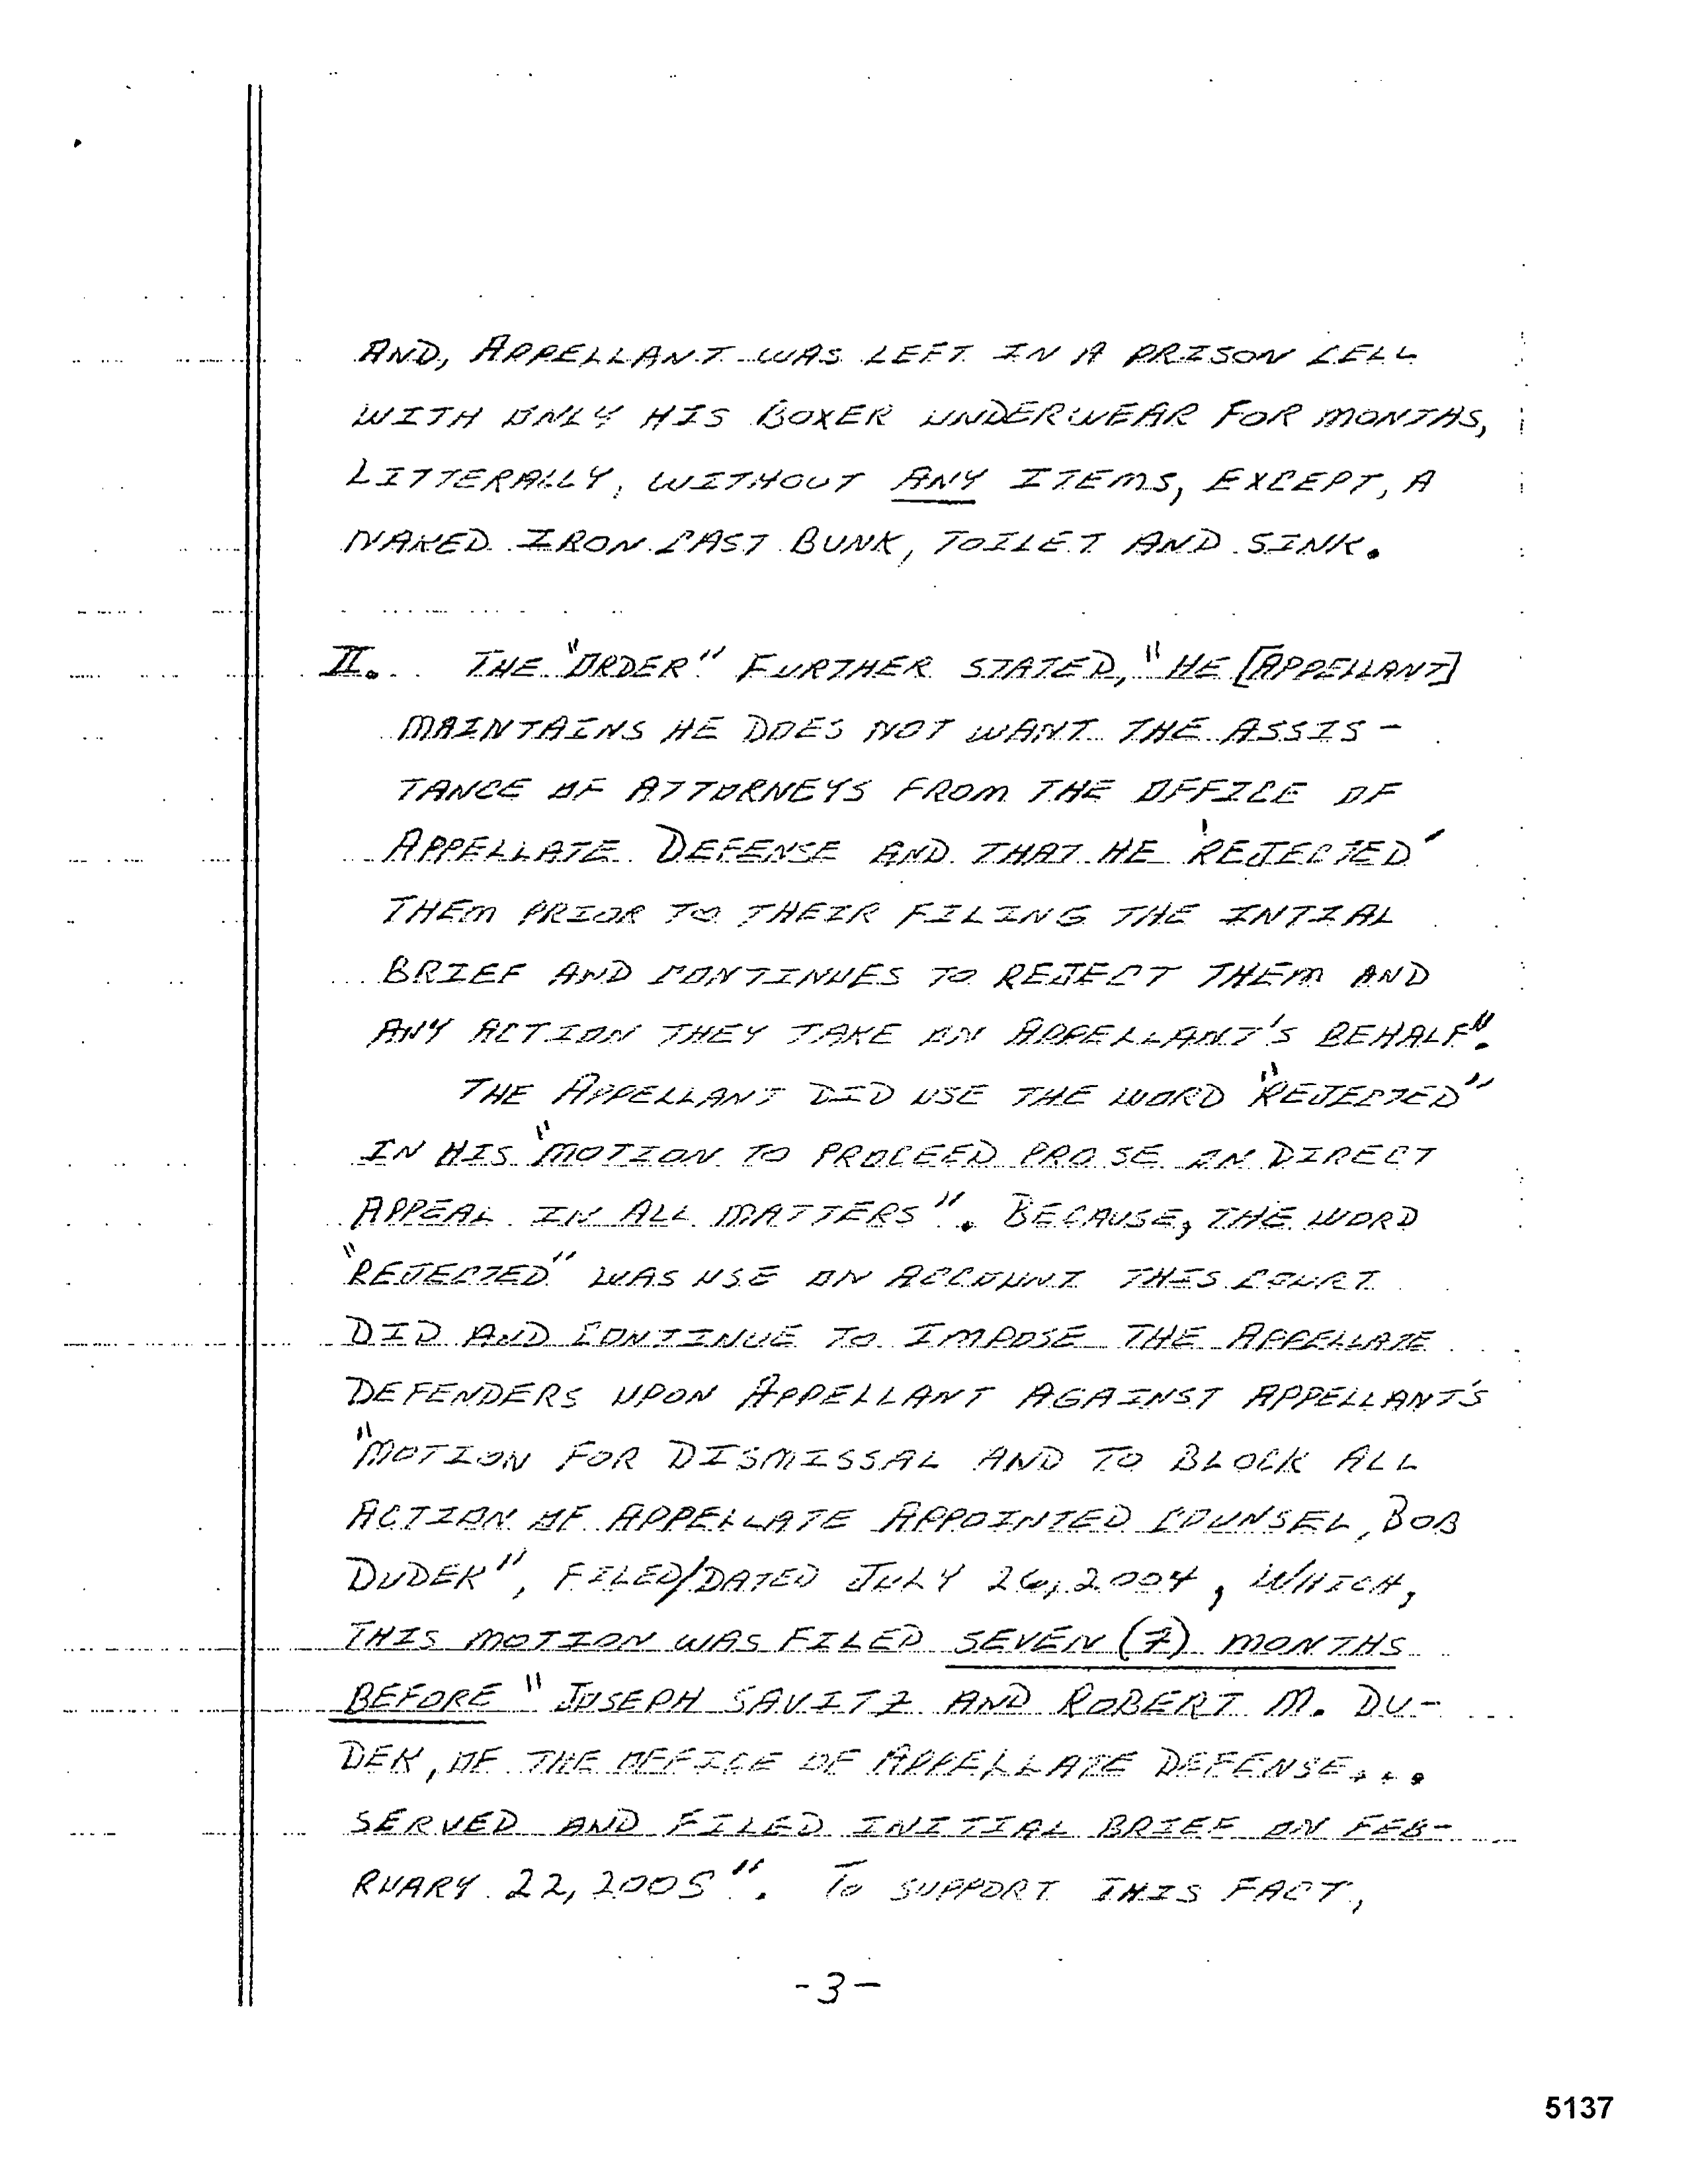 AND, APPELLANT WAS LEFT IN A PRISON CELL
WITH ONLY HIS BOXER UNDERWEAR FOR MONTHS,
LITTERALLY, WITHOUT ANY ITEMS, EXCEPT, A
NAKED IRON CAST BUNK, TOILET AND SINK.
II. THE "ORDER" FURTHER STATED, "HE [APPELLANT]
MAINTAINS HE DOES NOT WANT THE ASSIS-
TANCE OF ATTORNEYS FROM THE OFFICE OF
APPELLATE DEFENSE AND THAT HE 'REJECTED'
THEM PRIOR TO THEIR FILING THE INTIAL
BRIEF AND CONTINUES TO REJECT THEM AND
ANY ACTION THEY TAKE ON APPELLANT'S BEHALF".
THE APPELLANT DID USE THE WORD "REJECTED"
IN HIS "MOTION TO PROCEED PRO SE ON DIRECT
APPEAL IN ALL MATTERS". BECAUSE, THE WORD
"REJECTED" WAS USE ON ACCOUNT THIS COURT
DID AND CONTINUE TO IMPOSE THE APPELLATE
DEFENDERS UPON APPELLANT AGAINST APPELLANT'S
"MOTION FOR DISMISSAL AND TO BLOCK ALL
ACTION OF APPELLATE APPOINTED COUNSEL, BOB
DUDEK", FILED/DATED JULY 26, 2004, WHICH,
THIS MOTION WAS FILED SEVEN (7) MONTHS
BEFORE "JOSEPH SAVITZ AND ROBERT M. DU-
DEK, OF THE OFFICE OF APPELLATE DEFENSE...
SERVED AND FILED INITIAL BRIEF ON FEB-
RUARY 22, 2005". TO SUPPORT THIS FACT,
-3-
5137